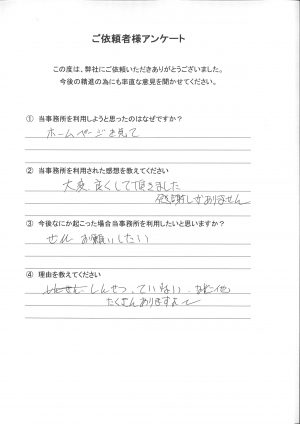 ご依頼者様アンケート
この度は、弊社にご依頼いただきありがとうございました。
今後の精進の為にも率直な意見を聞かせてください。
① 当事務所を利用しようと思ったのはなぜですか？
ホームページを見て
② 当事務所を利用された感想を教えてください
大変良くして頂きました
感謝しかありません
③ 今後なにか起こった場合当事務所を利用したいと思いますか？
ぜひ お願いしたい
④ 理由を教えてください
しんせつ、ていねい、
たくさんありますよ〜